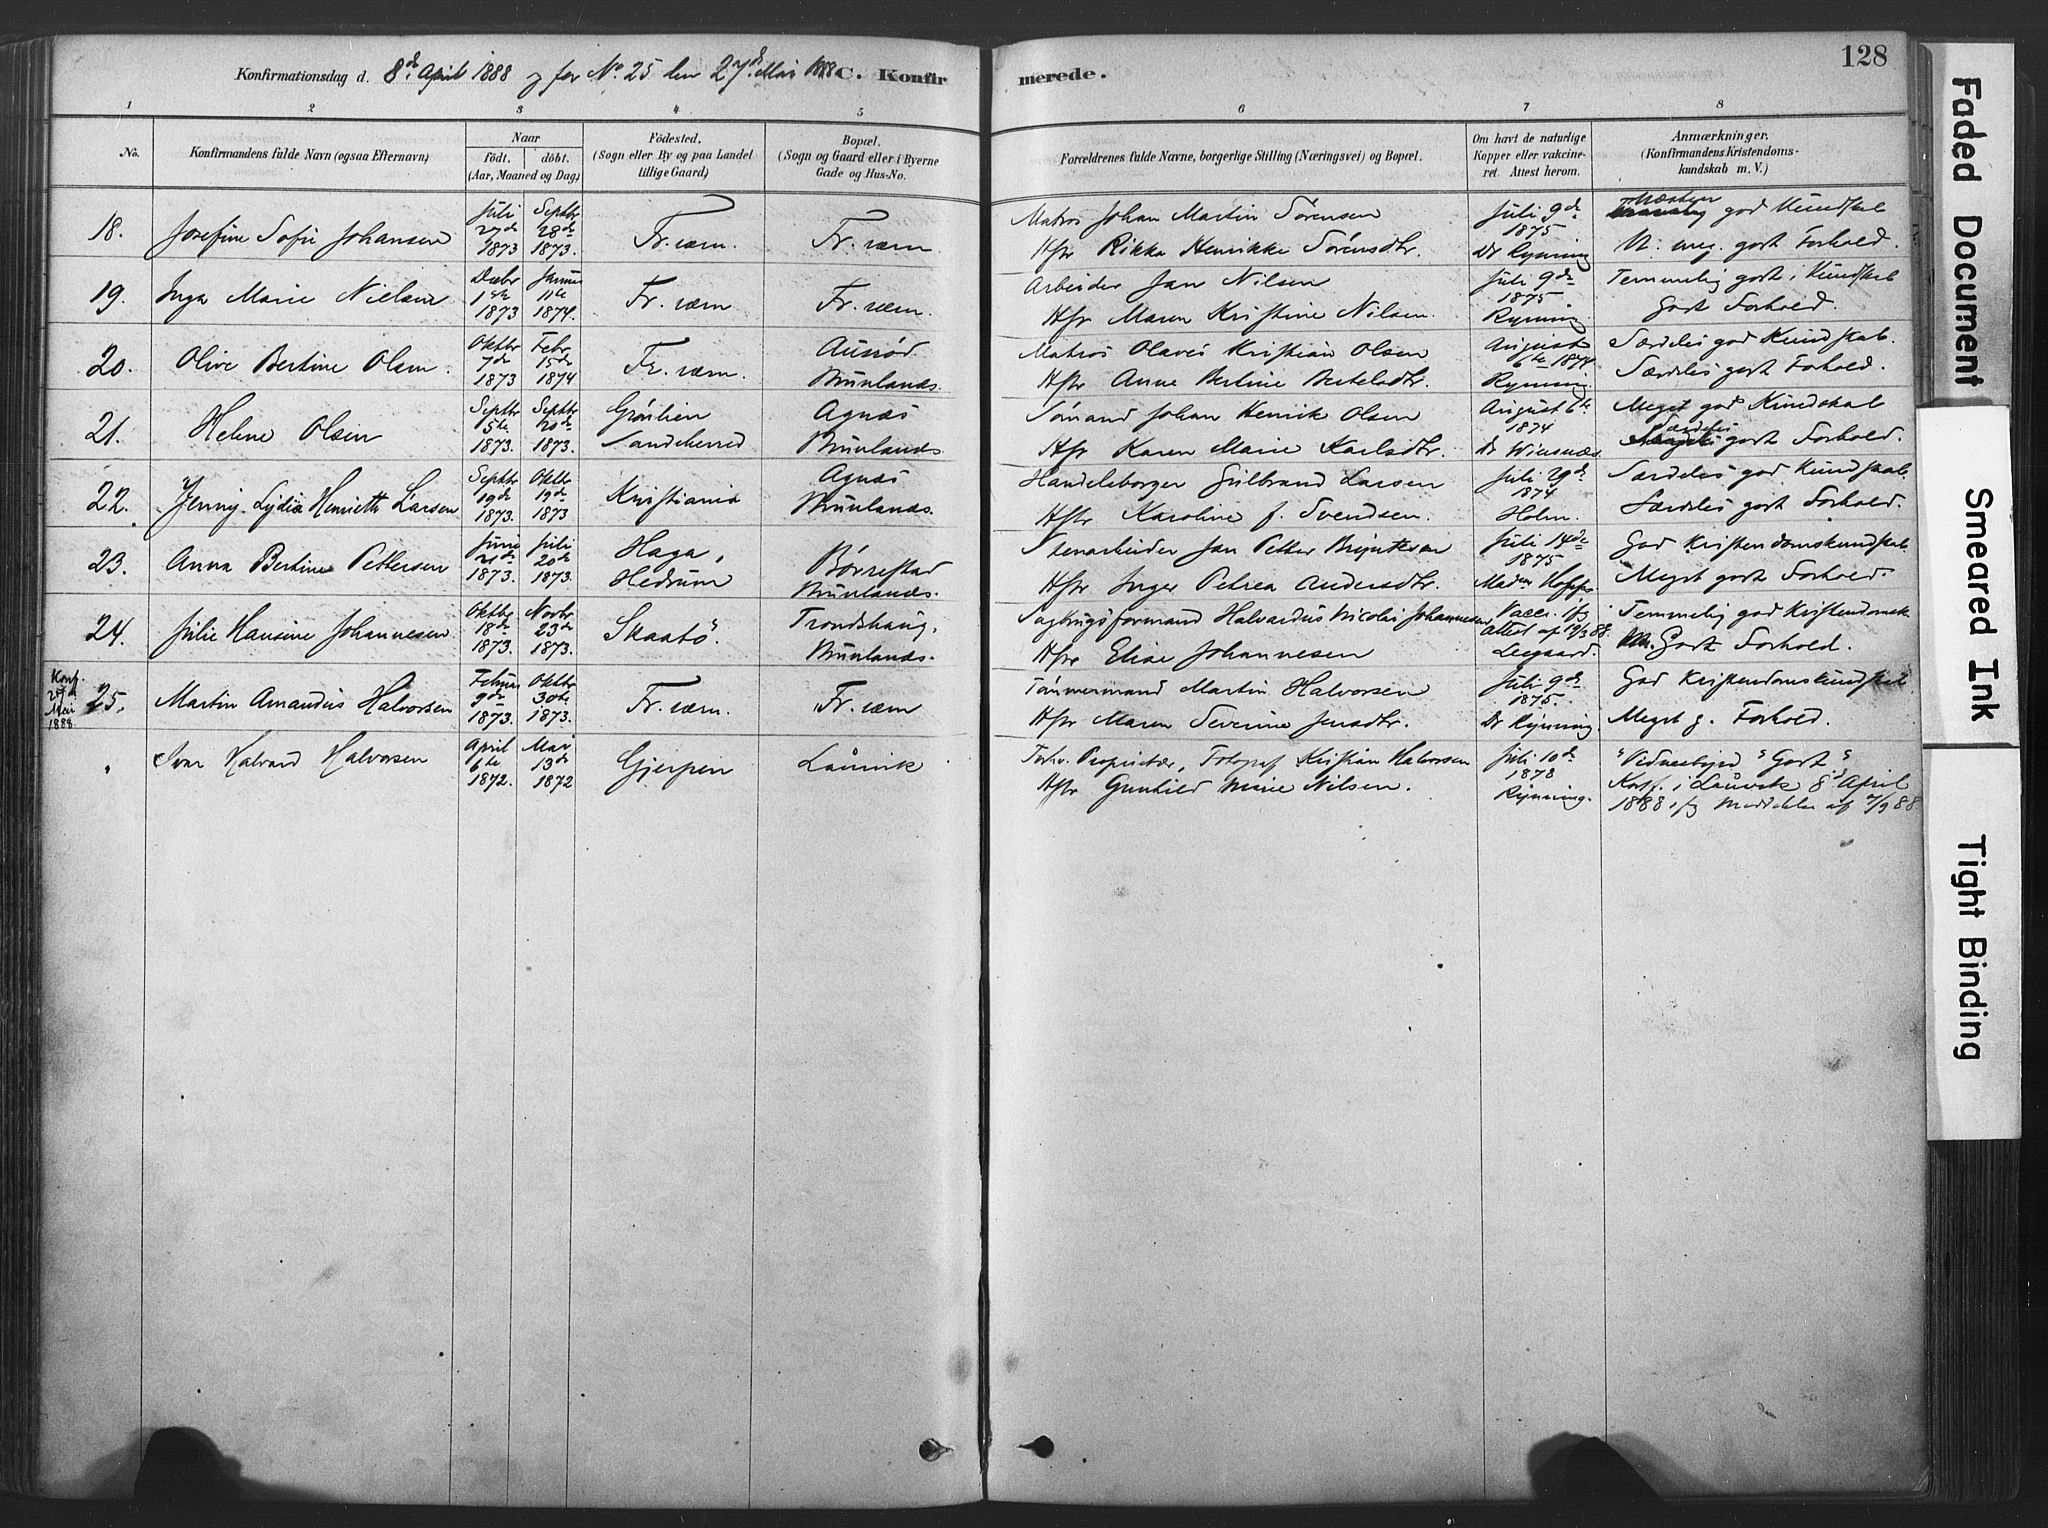 128
Konfirmationsdag d. 8de April 1888 og for No. 25 den 27de Mai 1888 C. Konfirmerede.
1 2 3 4 5 6 7 8
No.
Konfirmandens fulde Navn (ogsaa Efternavn)
Naar
födt. döbt.
(Aar, Maaned og Dag)
Födested.
(Sogn eller By og paa Landet
tillige Gaard)
Bopæl.
(Sogn og Gaard eller i Byerne
Gade og Hus-No.
Forældrenes fulde Navne, borgerlige Stilling (Næringsvei) og Bopæl.
Om havt de naturlige
Kopper eller vakcineret.
Attest herom.
Anmærkninger.
(Konfirmandens Kristendoms-
kundskab m. V.)
18. Josefine Sofie Johansen
Juli 27de 1873
Septbr 28de 1873.
Fr.værn.
Fr.værn
Matros Johan Martin Sørensen
Hstr Rikka Henrikke Sørensdtr.
Juli 9de 1875
Dr Rynning
Næsten god Kundskab
N. meg. godt Forhold.
19. Inga Marie Nielsen
Decbr 1ste 1873
Januar 11te 1874.
Fr.værn
Fr.værn.
Arbeider Jan Nilsen
Hstr Maren Kristine Nilsen.
Juli 9de 1875.
Rynning
Temmelig godt i Kundskab
Godt Forhold.
20. Olive Bertine Olsen.
Oktbr 7de 1873
Febr 15de 1874
Fr.værn.
Ausrød
Brunlanæs.
Matros Olaves Kristian Olsen
Hstr Anne Berline Bertelsdtr.
August 6te 1874.
Rynning
Særdeles god Kundskab.
Særdeles godt Forhold.
21. Helene Olsen
Septbr 5te 1873.
Septbr 20de 1873.
Grønlien
Sandeherred
Agnæs
Brunlanæs
Sømand Johan Henrik Olsen
Hstr Karen Marie Karlsdtr.
August 6te 1874
Dr Wiesnæs
Meget god Kundskab
Særdeles godt Forhold.
22. Jenny Lydia Henriette Larsen
Septbr 19de 1873.
Oktbr 19de 1873
Kristiania
Agnæs
Brunlanæs.
Handelsborger Gulbrand Larsen
Hstr Karoline f. Svendsen.
Juli 29de 1874
Holm.
Særdeles god Kundskab.
Særdeles godt Forhold.
23. Anna Bertine Pettersen
Juni 21de 1873.
Juli 20de 1873.
Haga,
Hedrum
Børrestad
Brunlanæs.
Stenarbeider Jan Petter Bryntesen
Hstr Inger Petrea Andersdtr.
Juli 14de 1875
Madm Hoppe
God Kristendomskundskab
Meget godt Forhold.
24. Julie Hansine Johannesen
Oktbr 18de 1873.
Novbr 23de 1873.
Skaatö
Trondshaug,
Brunlanæs.
Sagbrugsformand Halvardus Nicolai Johannesen
Hstr Elise Johannesen
Vacc. ifg
attest af 19/3 88.
Leegaard.
Temmelig god Kristendomsk
Godt Forhold.
Konf. 27de Mai 1888.
25. Martin Amandus Halvorsen
Februar 9de 1873.
Oktbr 30te 1873.
Fr.værn.
Fr.værn
Tømmermand Martin Halvorsen
Hstr Maren Severine Jensdtr.
Juli 9de 1875.
Dr Rynning.
God Kristendomskundskab
Meget g. Forhold.
" Ivar Halvard Halvorsen
April 6te 1872.
Mai 13de 1872
Gjerpen
Laurvik
Forhv. Proprietær, Fotograf Kristian Halvorsen
Hstr Gunhild Marie Nilsen.
Juli 10de 1878
Rynning.
"Vidnesbyrd "Godt"
Konf. i Laurvik 8de April
1888 ifg Meddelelse af 7/9 88
Faded Document
Smeared Ink
Tight Binding